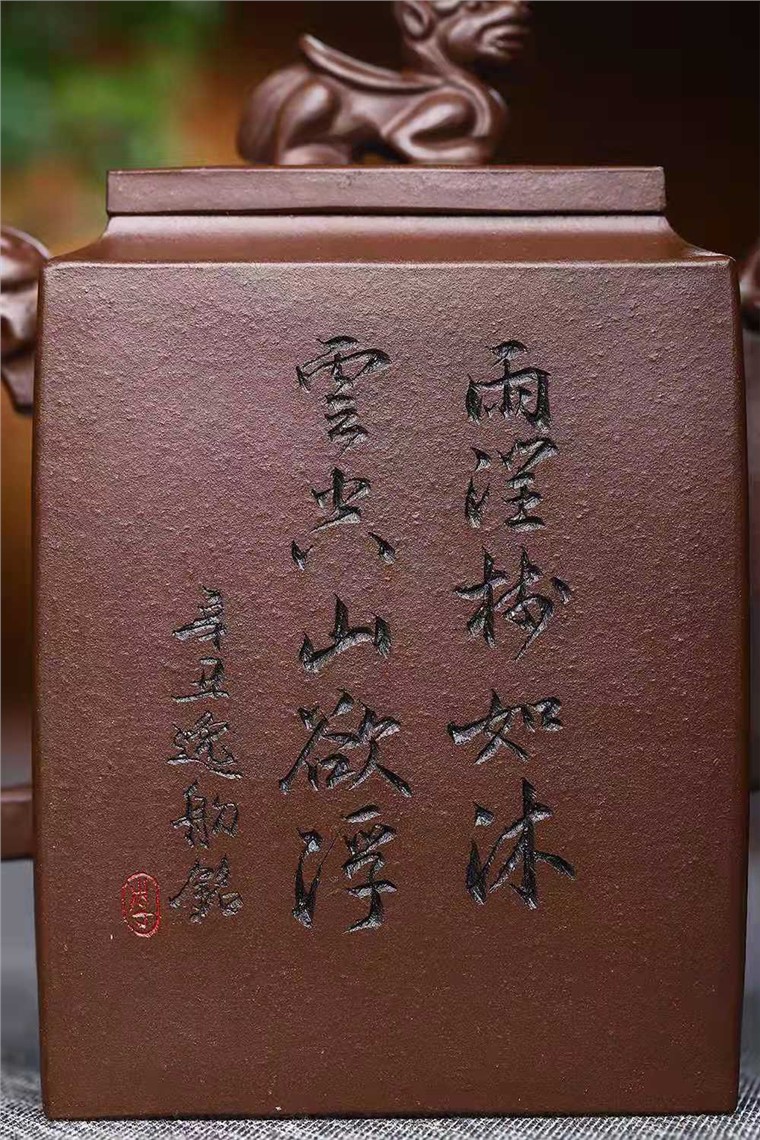 雨浥樹如沐
雲空山欲浮
辛丑逸舫銘